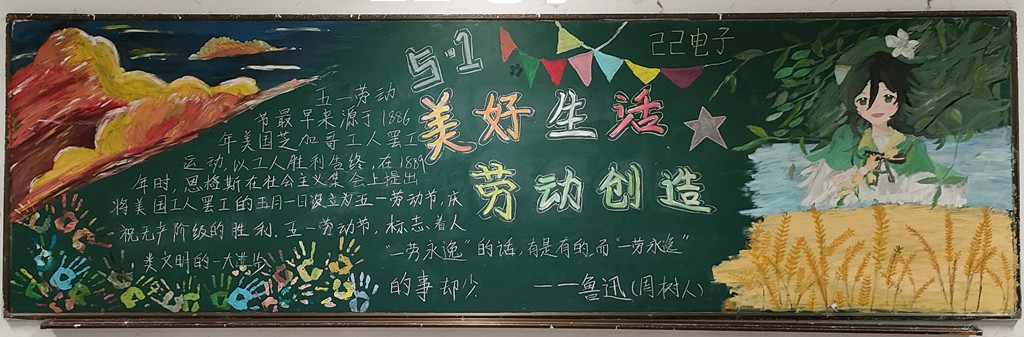 5·1
己己电子
美好生活
劳动创造
五一劳动
节最早来源于1886
年美国芝加哥工人罢工
运动,以工人胜利告终,在1889
年时,恩格斯在社会主义集会上提出
将美国工人罢工的五月一日设立为五一劳动节,庆
祝无产阶级的胜利.五一劳动节,标志着人
类文明的一大进步
“一劳永逸”的话,有是有的,而“一劳永逸”
的事却少
——鲁迅(周树人)